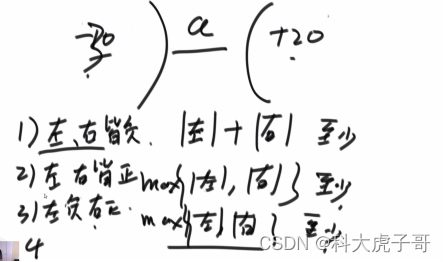 -30 ) a ( +20
1) 左、右皆负. |左|+|右| 至少
2) 左右皆正 max{|左|,|右|} 至少
3) 左负右正. max{左|右|} 至少
4
CSDN @科大虎子哥